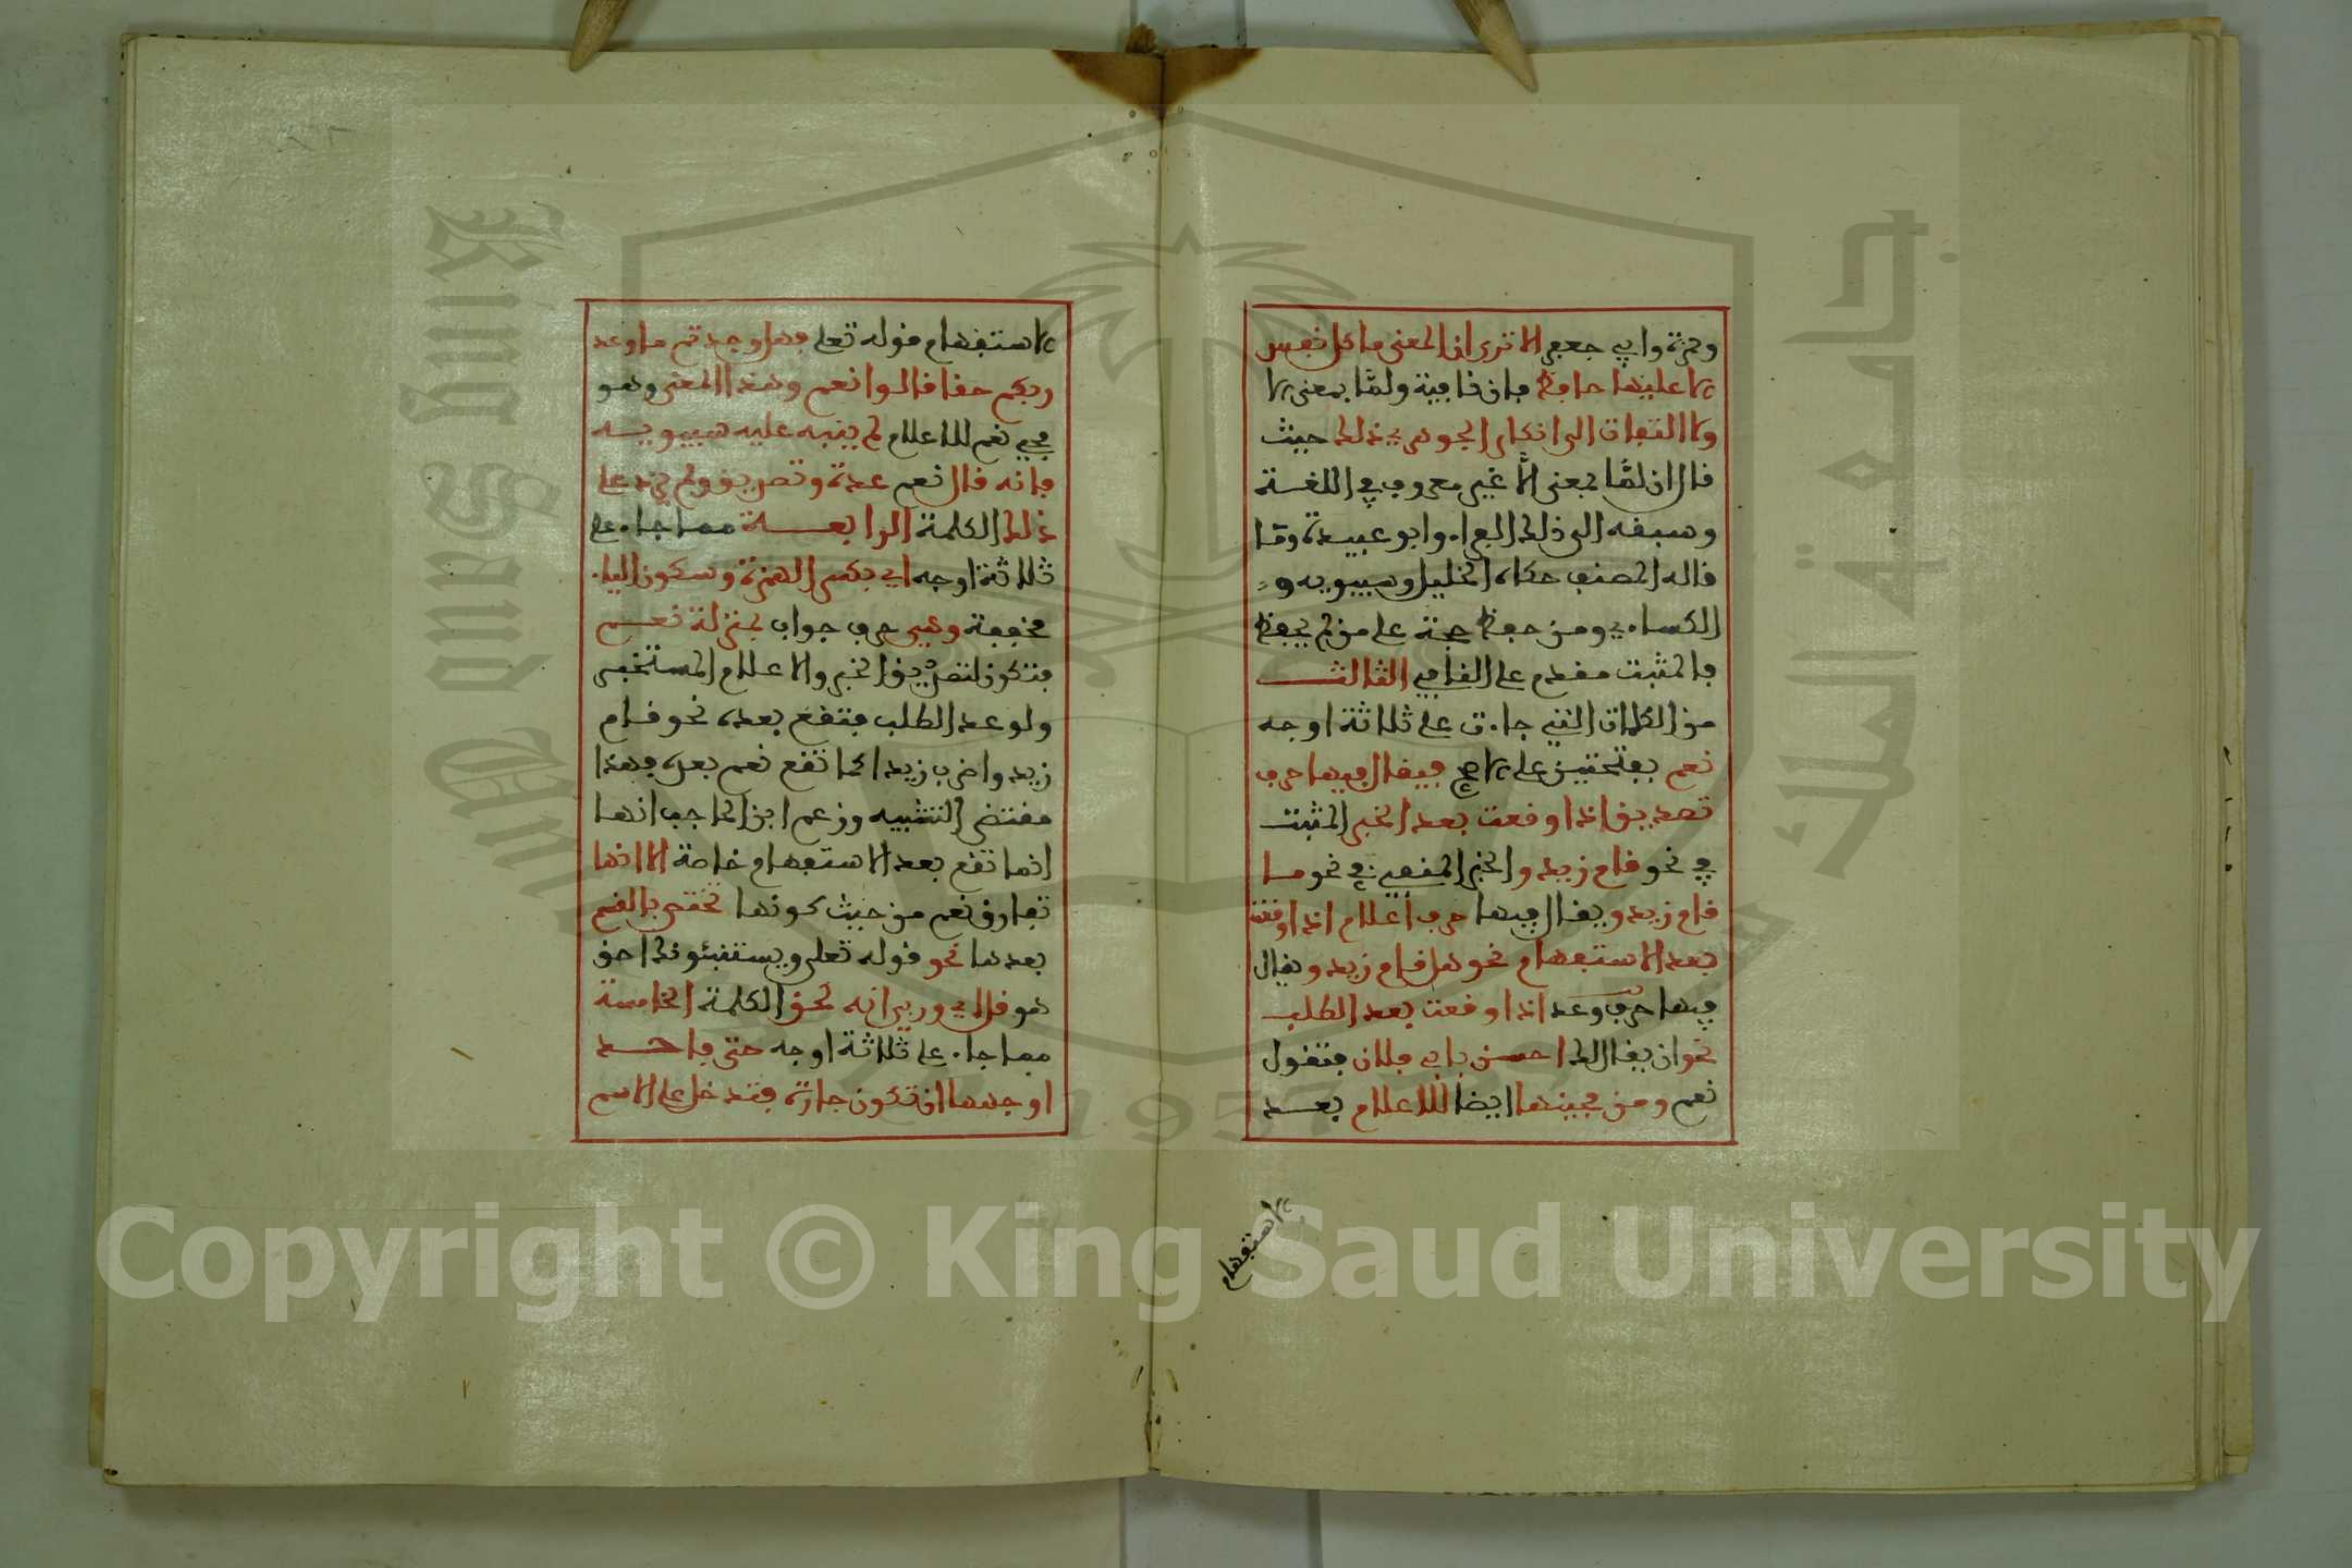 وحمزة وابي جعفر الا ترى ان المعنى ما كل نفس
الا عليها حافظ فان نافية ولمّا بمعنى الا
ولا التفات الى انكار الجوهري ذلك حيث
قال ان لمّا بمعنى الّا غير معروف في اللغة
وسبقه الى ذلك الفراء وابو عبيدة وما
قاله المصنف حكاه الخليل وسيبويه و
الكساءي ومن حفظ حجة على من لم يحفظ
فالمثبت مقدم على النافي الثالث
من الكلمات التي جاءت على ثلاثة اوجه
نعم بفتحتين على الاصح فيقال فيها حرف
تصديق اذا وقعت بعد الخبر المثبت
في نحو قام زيد والخبر المنفي في نحو ما
قام زيد ويقال فيها حرف اعلام اذا وقعت
بعد الاستفهام نحو هل قام زيد ويقال
فيها حرف وعد اذا وقعت بعد الطلب
نحو ان يقال لك احسن بابي فلان فتقول
نعم ومن مجيئها ايضا للاعلام بعد
الاستفهام
الاستفهام قوله تعلى فهل وجدتم ما وعد
ربكم حقا قالوا نعم وهذا المعنى وهو
مجيء نعم للاعلام لم ينبه عليه سيبويه
فانه قال نعم عدة وتصديق ولم يزد على
ذلك الكلمة الرابعة مما جاء على
ثلاثة اوجه اي بكسر الهمزة وسكون الياء
مخففة وهي حرف جواب بمنزلة نعم
فتكون لتصديق الخبر والاعلام المستخبر
ولوعد الطلب فتقع بعده نحو قام
زيد واضرب زيدا كما تقع نعم بعده فهذا
مقتضى التشبيه وزعم ابن الحاجب انها
انما تقع بعد الاستفهام خاصة الا انها
تفارق نعم من حيث كونها تختص بالقسم
بعدها نحو قوله تعلى ويستنبئونك احق
هو قل اي وربي انه لحق الكلمة الخامسة
مما جاء على ثلاثة اوجه حتى فاحد
اوجهها ان تكون جارة فتدخل على الاسم
Copyright © King Saud University
1957